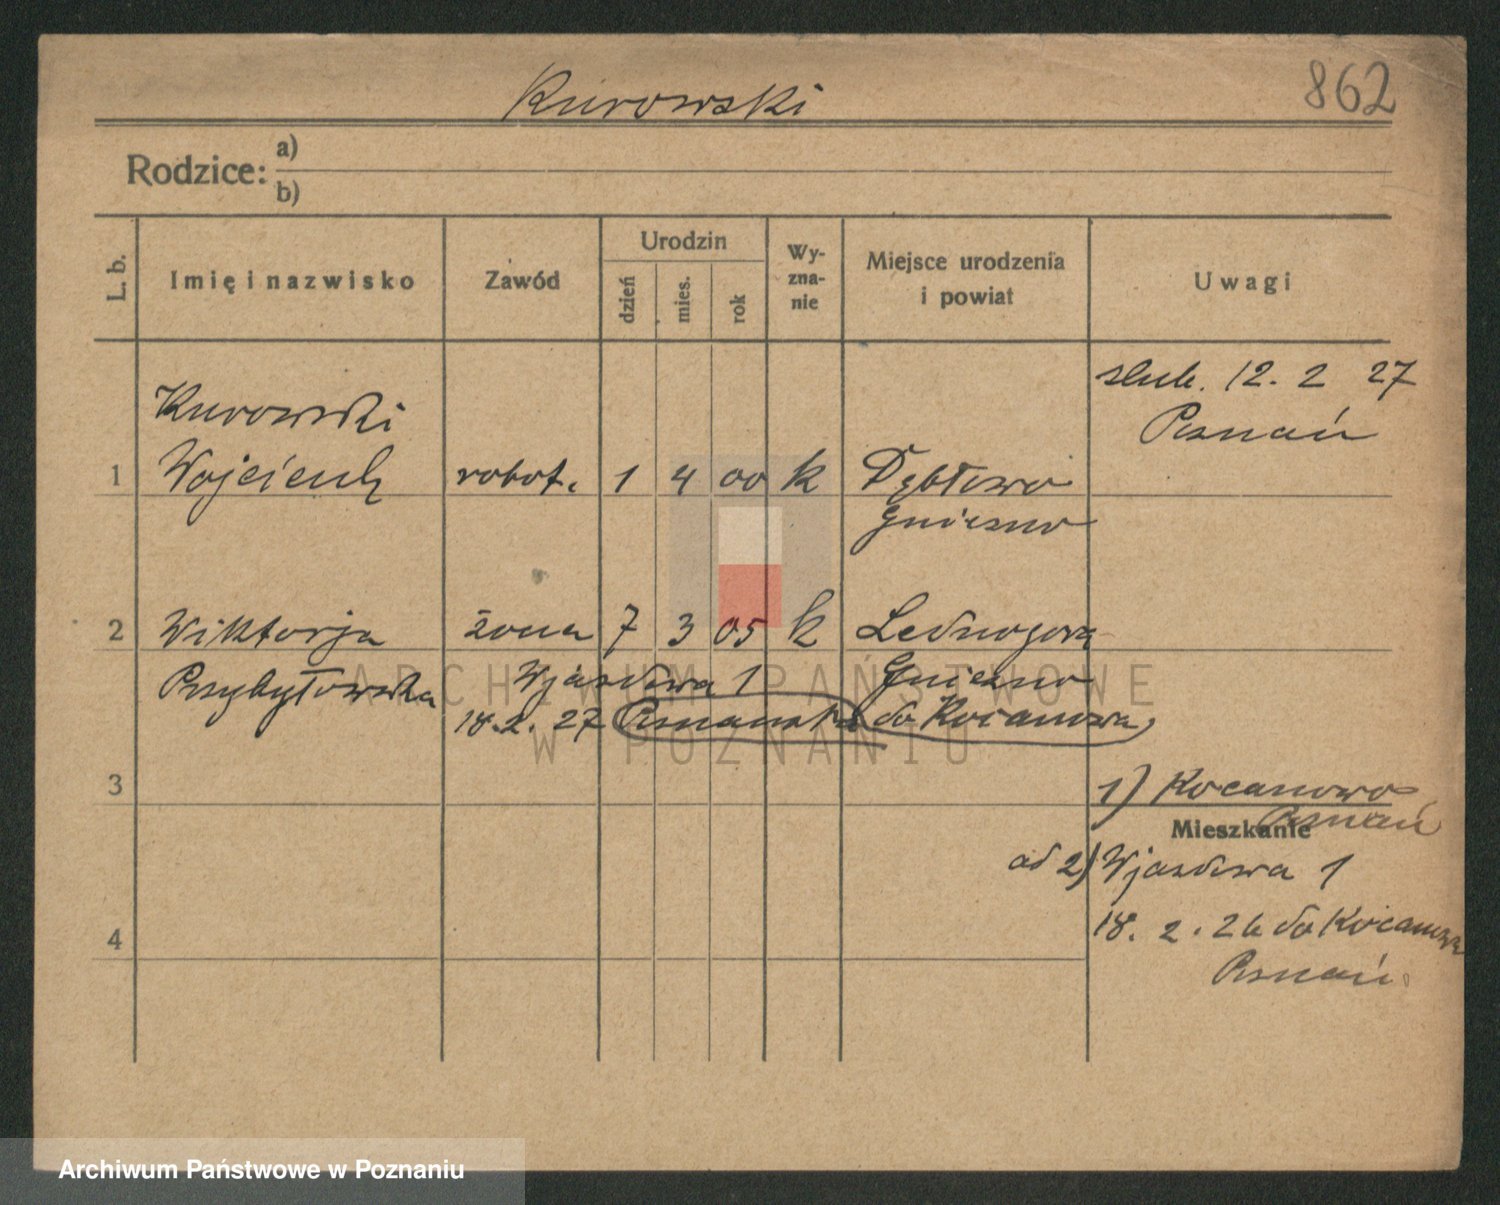 Kurowski
862
Rodzice: a)
b)
L. b.
Imię i nazwisko
Zawód
Urodzin
dzień
mies.
rok
Wy-
zna-
nie
Miejsce urodzenia
i powiat
Uwagi
ślub. 12. 2 27
Poznań
Kurowski
1 Wojciech robot. 1 4 00 k Dębłowo
Gniezno
2 Wiktorja żona 7 3 05 k Lednogóra
Przybyłowska Wjazdowa 1 Gniezno
18. 2. 27 do Kocanowa
3
1) Kocanowo
Poznań
Mieszkanie
ad 2) Wjazdowa 1
4
18. 2. 26 do Kocanowa
Poznań
ARCHIWUM PAŃSTWOWE
W POZNANIU
Archiwum Państwowe w Poznaniu